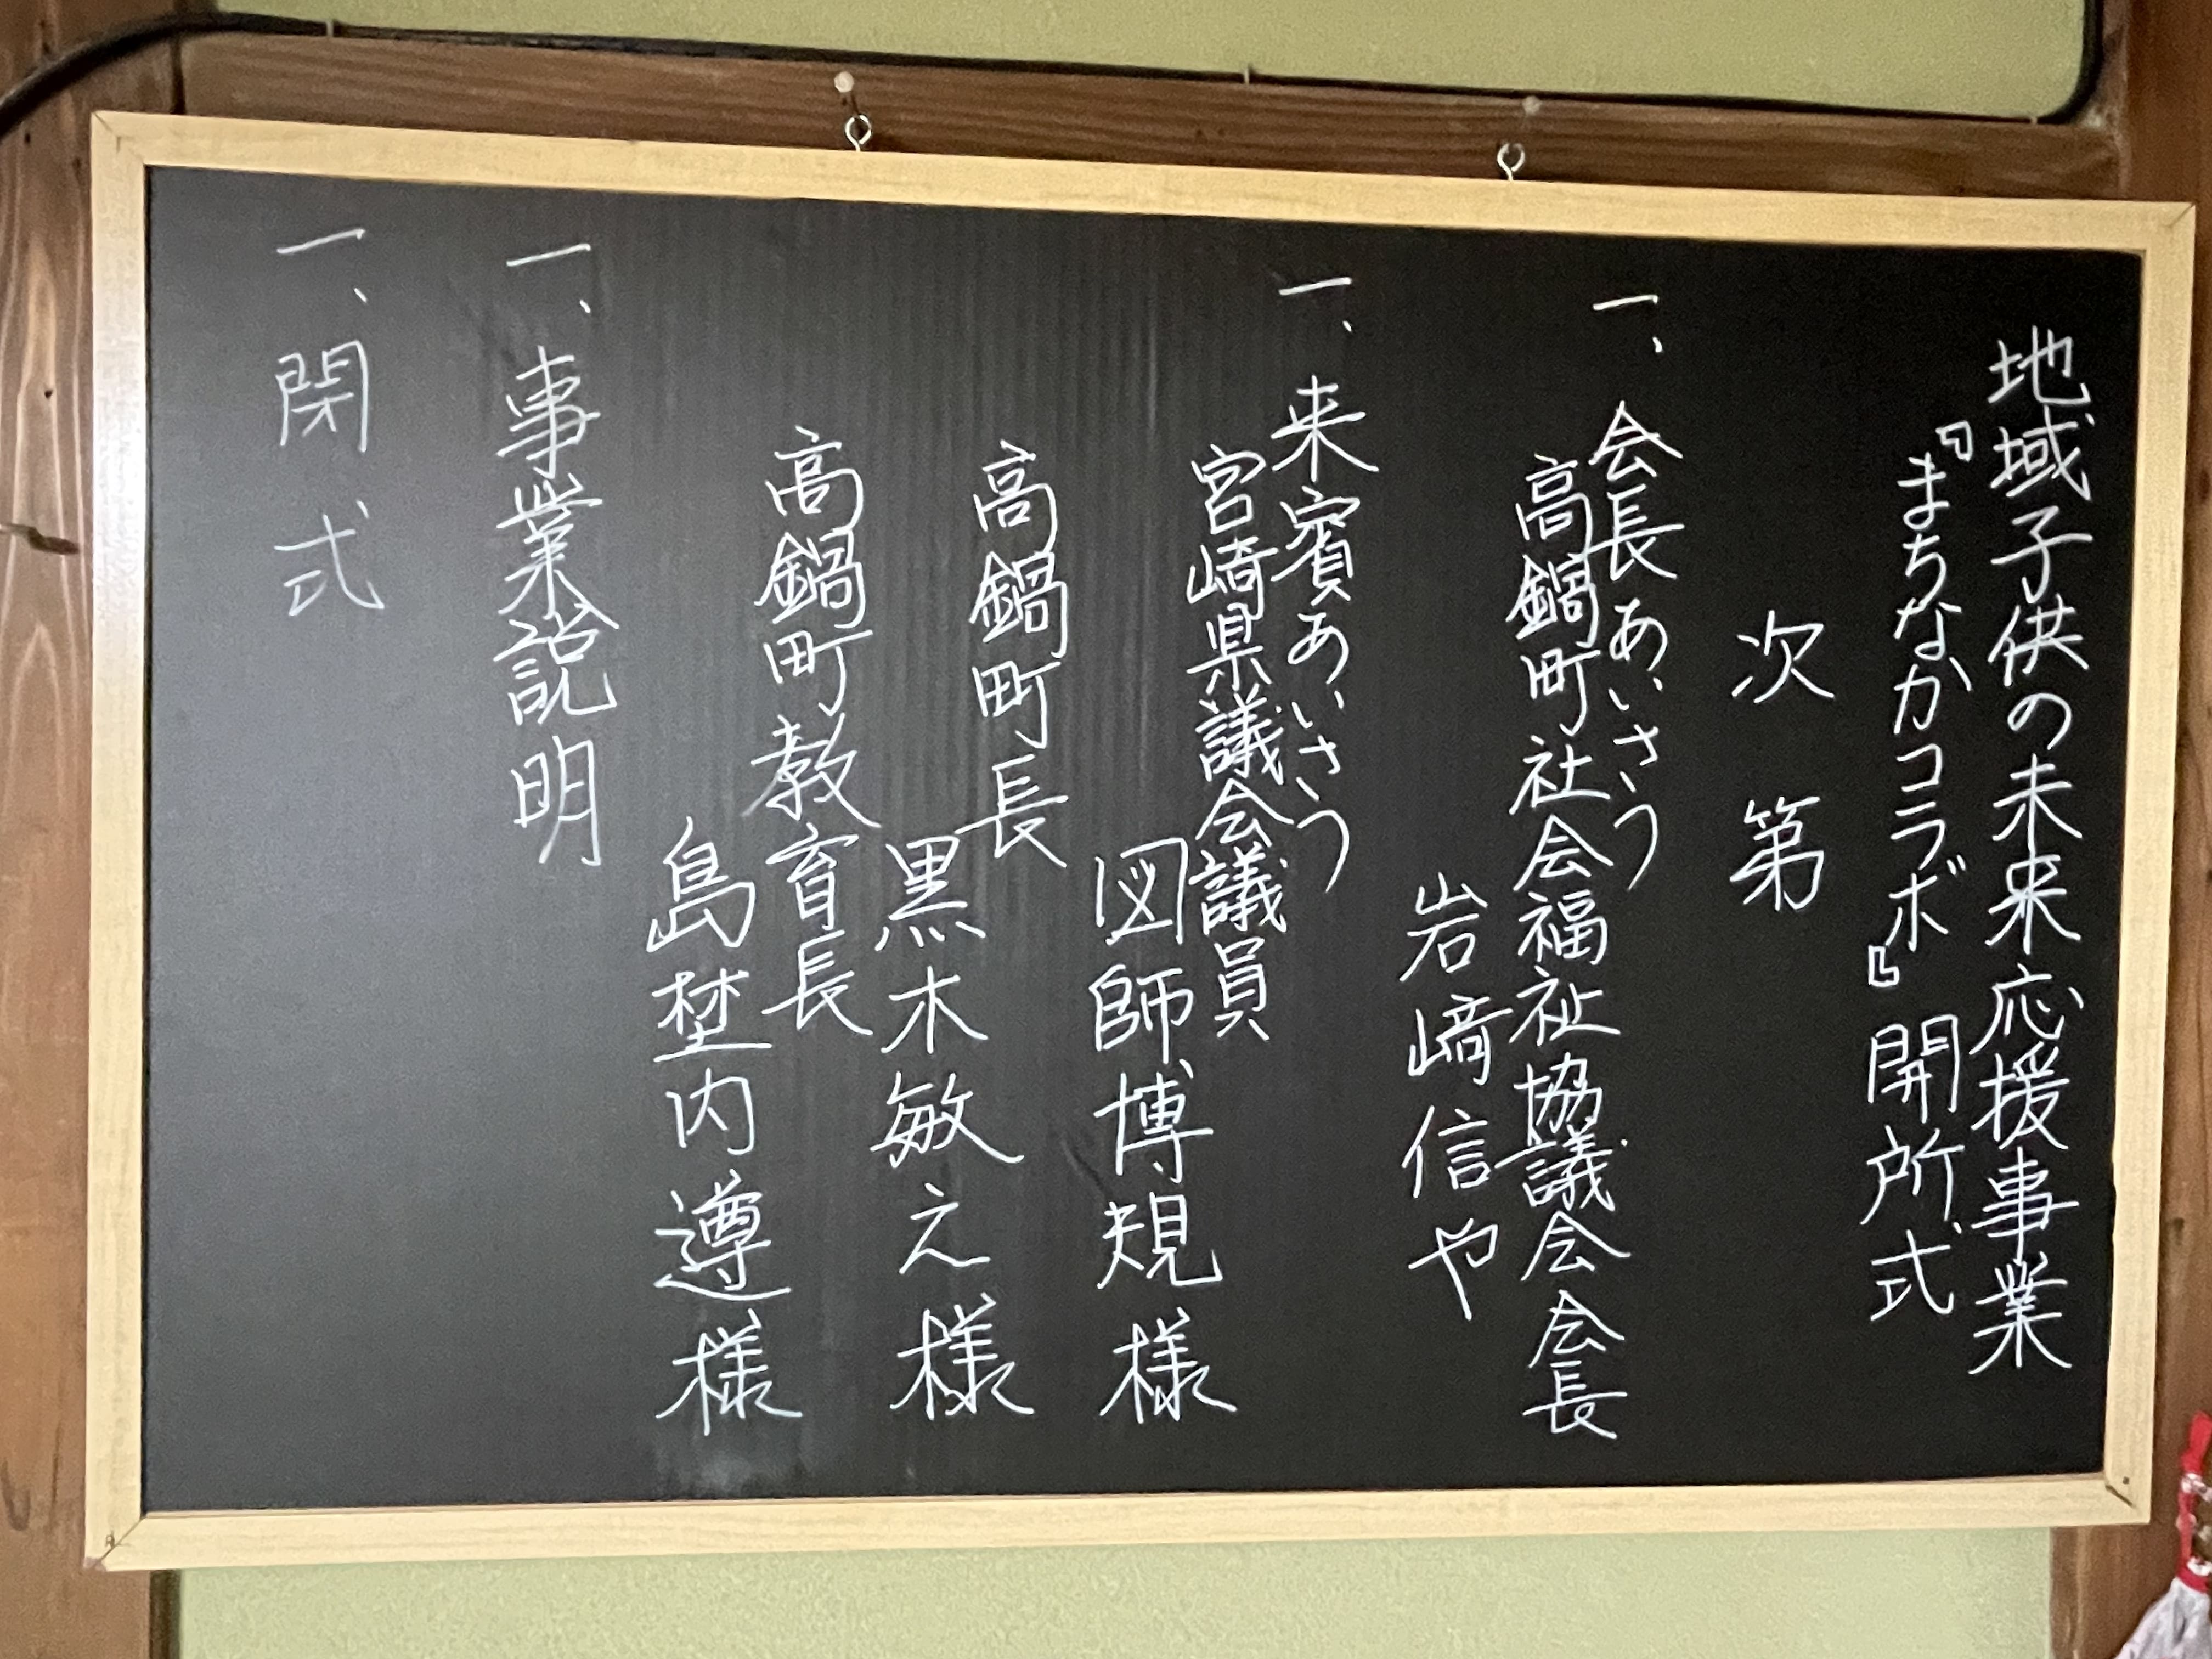 地域子供の未来応援事業
『まちなかコラボ』開所式
次第
一、会長あいさつ
高鍋町社会福祉協議会会長
岩﨑信や
一、来賓あいさつ
宮崎県議会議員
図師博規様
高鍋町長
黒木敏之様
高鍋町教育長
島埜内遵様
一、事業説明
一、閉式